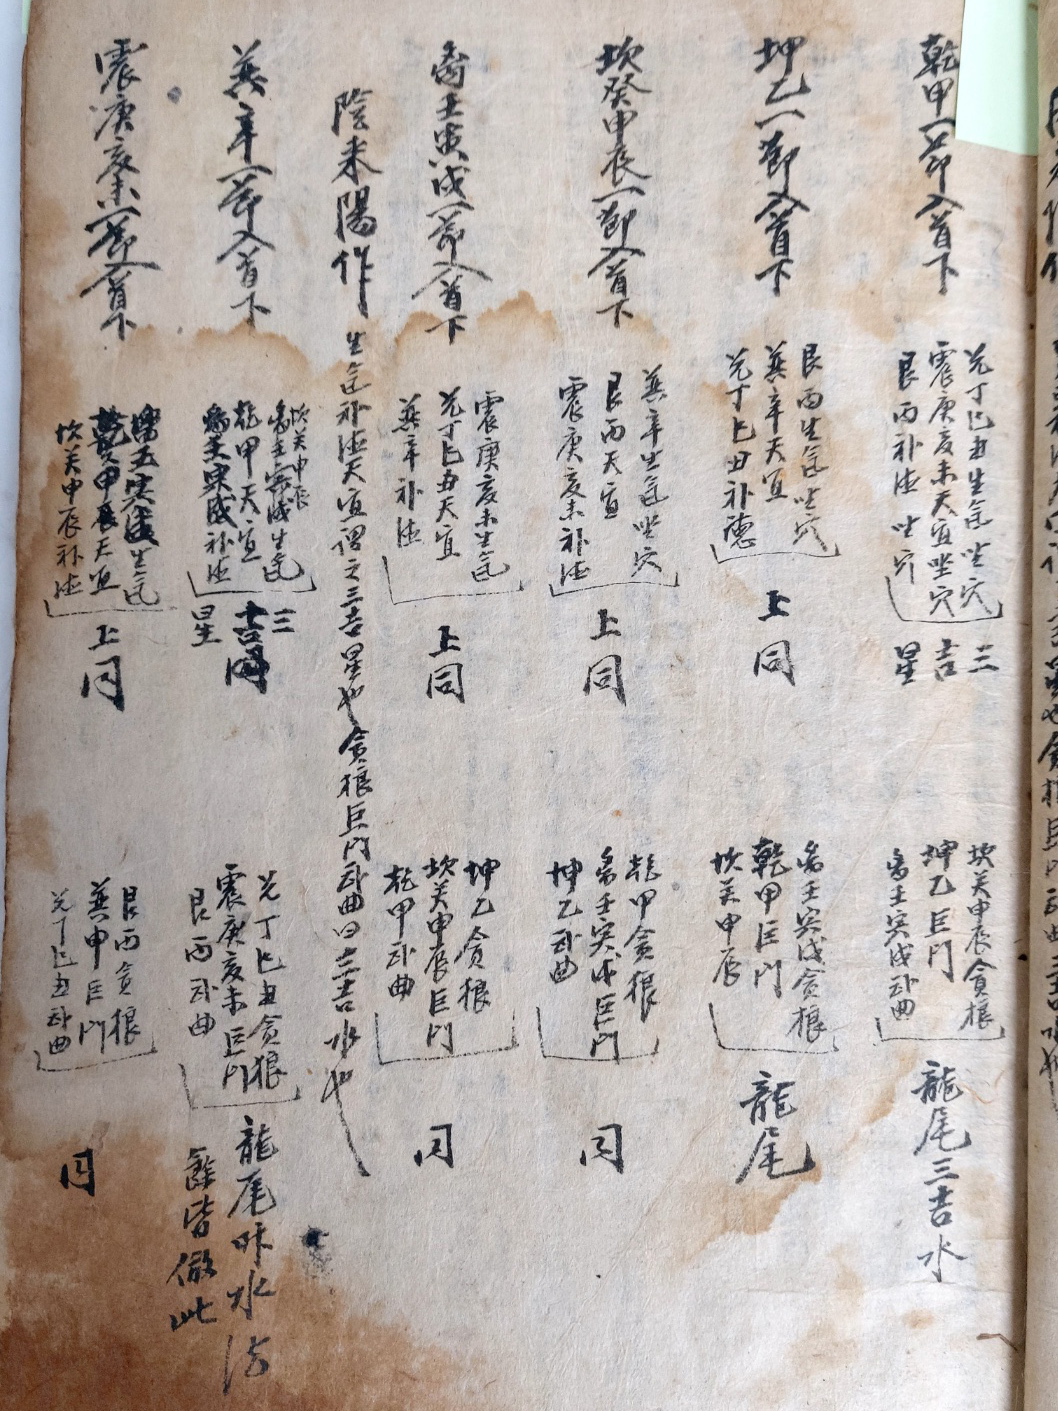 乾甲一節入首下
兌丁巳丑生氣坐穴
震庚亥未天宜坐穴
艮丙補德坐穴
三吉星
坎癸申辰貪狼
坤乙巨門
离壬寅戌武曲
龍尾三吉水
坤乙一節入首下
艮丙生氣坐穴
巽辛天宜
兌丁巳丑補德
上同
离壬寅戌貪狼
乾甲巨門
坎癸申辰
龍尾
坎癸申辰一節入首下
巽辛生氣坐穴
艮丙天宜
震庚亥未補德
上同
乾甲貪狼
离壬寅戌巨門
坤乙武曲
同
离壬寅戌一節入首下
震庚亥未生氣
兌丁巳丑天宜
巽辛補德
上同
坤乙貪狼
坎癸申辰巨門
乾甲武曲
同
陰來陽作 生氣補德天宜謂之三吉星也貪狼巨門武曲曰三吉水也
巽辛一節入首下
坎癸申辰
离壬寅戌生氣
乾甲天宜
補德
三吉星
同
兌丁巳丑貪狼
震庚亥未巨門
艮丙武曲
龍尾 水法
餘皆倣此
震庚亥未一節入首下
离壬寅戌生氣
天宜
坎癸申辰補德
上同
艮丙貪狼
巽申巨門
兌丁巳丑武曲
同